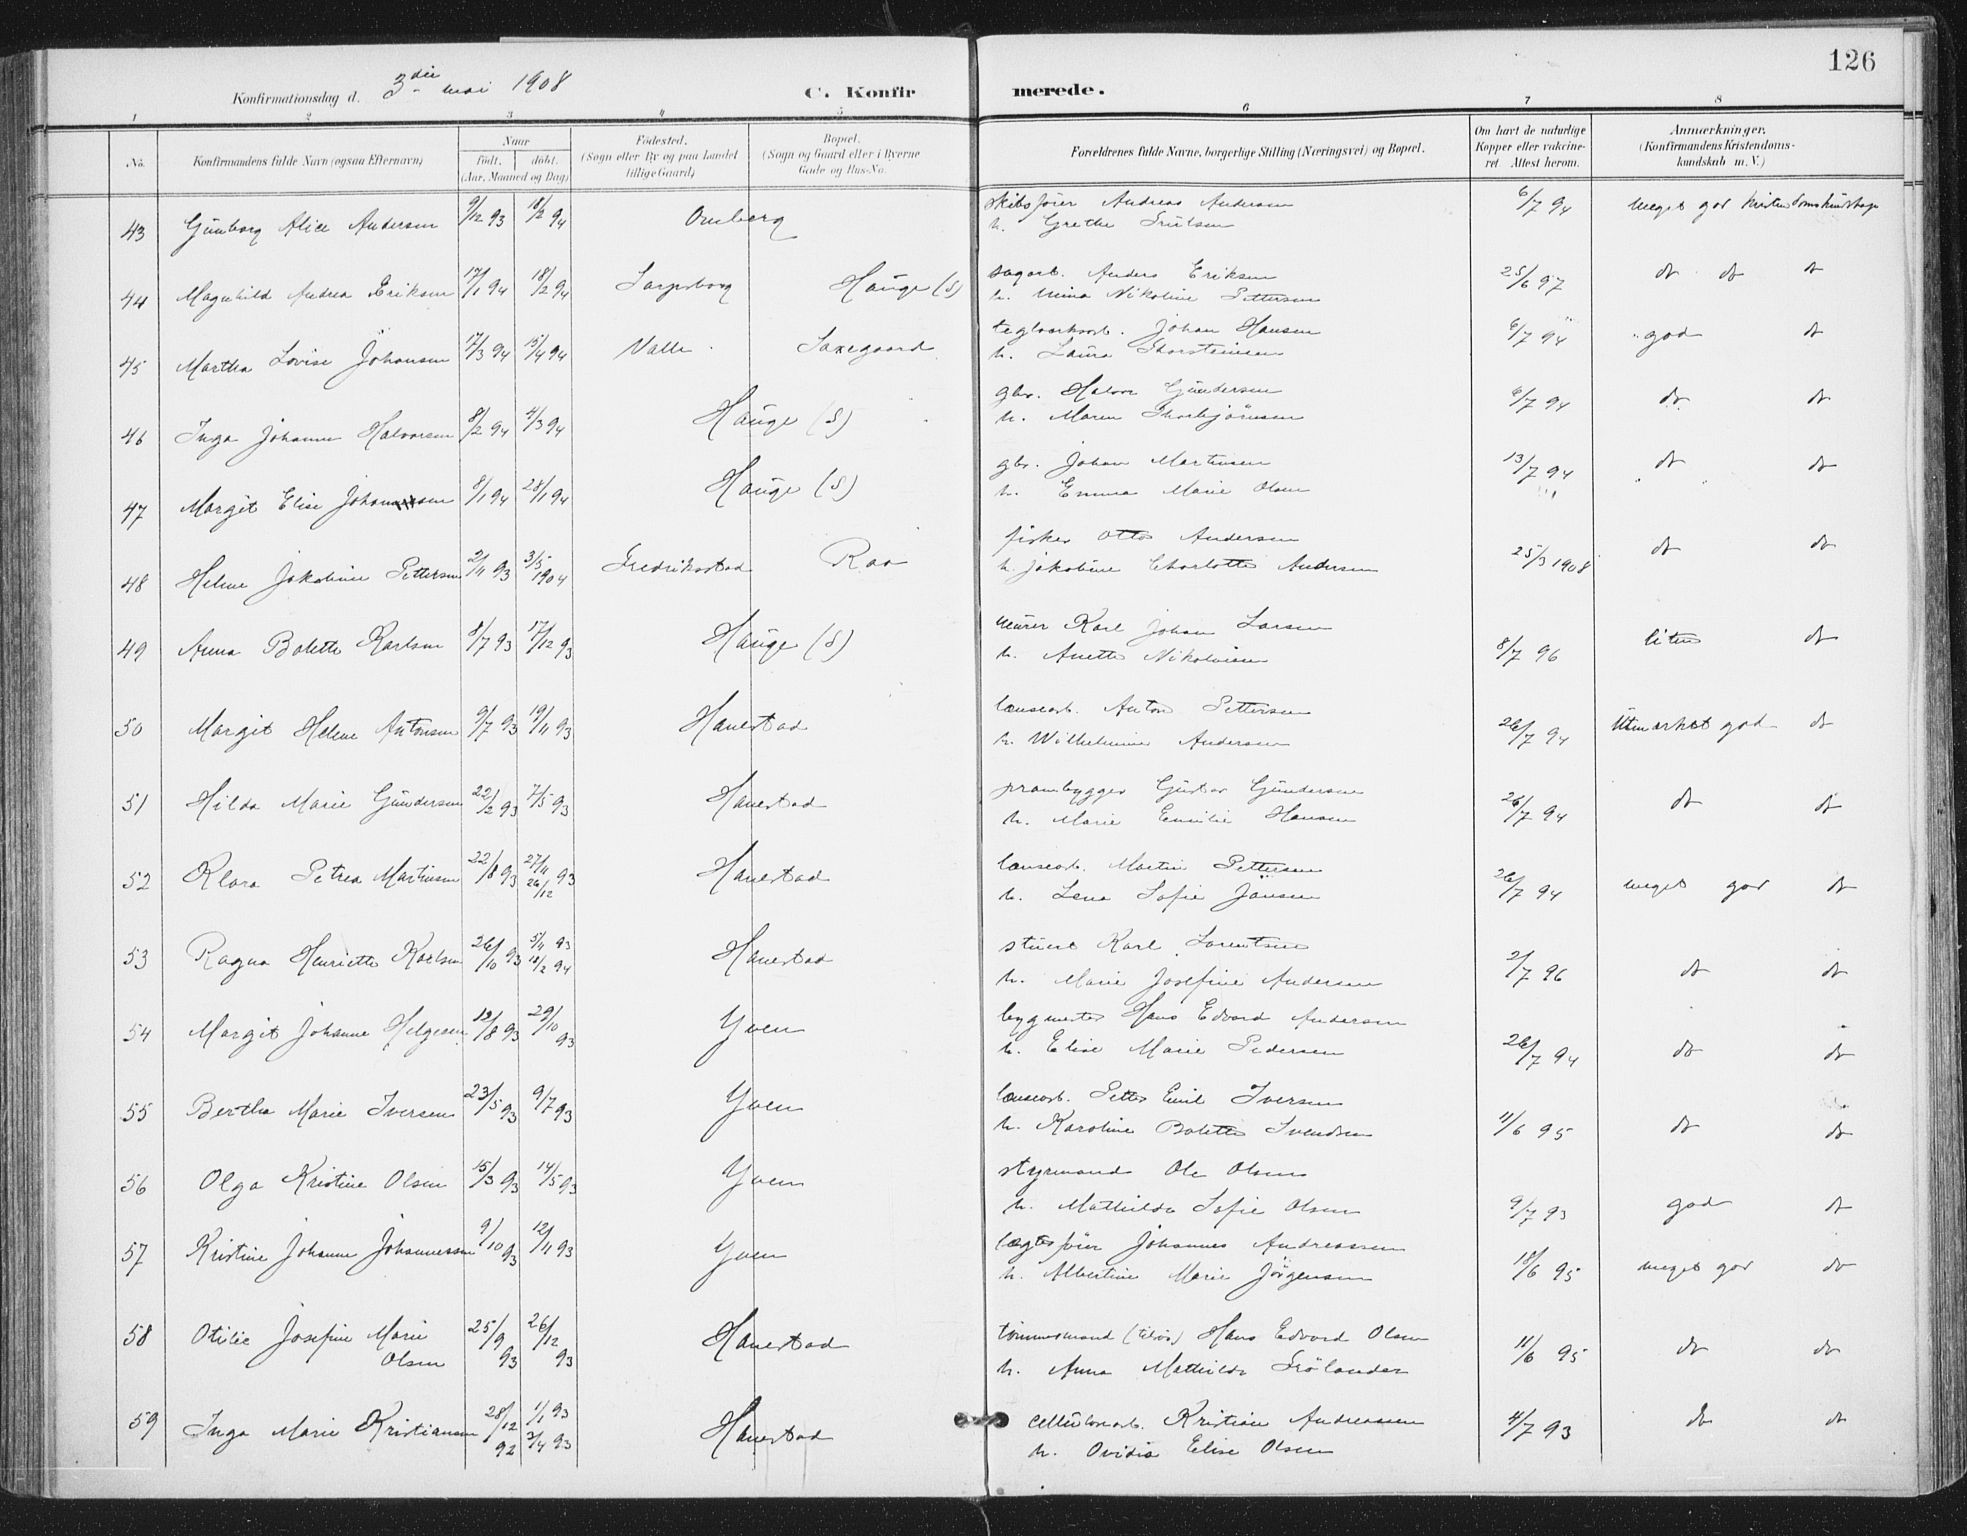 126
Konfirmationsdag d. 3die mai 1908 C. Konfirmerede.
1 2 3 4 5 6 7 8
No. Konfirmandens fulde Navn (ogsaa Efternavn) Naar födt. döbt. (Aar, Maaned og Dag) Födested. (Sogn eller By og paa Landet tillige Gaard) Bopæl. (Sogn og Gaard eller i Byerne Gade og Hus-No. Forældrenes fulde Navne, borgerlige Stilling (Næringsvei) og Bopæl. Om havt de naturlige Kopper eller vaccineret Attest herom. Anmærkninger. (Konfirmandens Kristendomskundskab m. V.)
43 Gunborg Alice Andersen 9/12 93 18/2 94 Omberg skibsfører Andreas Andersen 6/7 94 meget god kristendomskundskap
h. Grethe
44 Magnhild Andrea Eriksen 17/1 94 18/2 94 Sarpsborg Hauge (S) sagarb. Anders Eriksen 25/6 97 do do do
h. Mina Nikoline Pettersen
45 Martha Lovise Johansen 17/3 94 15/4 94 Valle Saxegaard teglverksarb. Johan Hansen 6/7 94 god do
h. Laura Thorsteinsen
46 Inga Johanne Halvorsen 8/2 94 4/3 94 Hauge (S) gbr. Halvor Gundersen 6/7 94 do do
h. Maren Thorbjørnsen
47 Margit Elise Johansen 8/1 94 28/1 94 Hauge (S) gbr. Johan Martinsen 13/7 94 do do
h. Emma Marie Olsen
48 Helene Jakobine Pettersen 2/11 93 3/5 1904 Fredriksstad Raa fisker Otto Andersen 25/3 1908 do do
h. Jakobine Charlotte Andersen
49 Anna Bolette Karlsen 8/7 93 17/12 93 Hauge (S) murer Karl Johan Larsen 8/7 96 liten do
h. Anette Nikolaisen
50 Margit Helene Antonsen 9/7 93 19/11 93 Hanestad lænsearb. Anton Pettersen 26/7 94 Utmerket god do
h. Wilhelmine Andersen
51 Hilda Marie Gundersen 22/2 93 7/5 93 Hanestad prambygger Gustav Gundersen 26/7 94 do do
h. Marie Emilie Hansen
52 Klara Petrea Martinsen 22/8 93 27/11 93 26/12 Hanestad lænsearb. Martin Pettersen 26/7 94 meget god do
h. Lena Sofie Jansen
53 Ragna Henriette Karlsen 26/10 93 5/11 93 18/2 94 Hanestad stuert Karl Lorentsen 2/7 96 do do
h. Marie Josefine Andersen
54 Margit Johanne Helgesen 13/8 93 29/10 93 Yven bygmester Hans Edvard Andersen 26/7 94 do do
h. Elise Marie Pedersen
55 Bertha Marie Iversen 23/5 93 9/7 93 Yven lænsearb. Petter Emil Iversen 11/6 95 do do
h. Karoline Bolette Svendsen
56 Olga Kristine Olsen 15/3 93 14/5 93 Yven styrmand Ole Olsen 9/7 93 god do
h. Mathilda Sofie Olsen
57 Kristine Johanne Johannessen 9/10 93 12/11 93 Yven lægtefører Johannes Andreassen 18/6 95 meget god do
h. Albertine Marie Jørgensen
58 Otilie Josefine Marie Olsen 25/9 93 26/12 93 Hanestad tømmermand Hans Edvard Olsen 11/6 95 do do
h. Anna Mathilde Frølander
59 Inga Marie Kristiansen 28/12 92 1/1 93 3/4 93 Hanestad cellulosearb. Kristian Andreassen 4/7 93 do do
h. Ovidia Elise Olsen